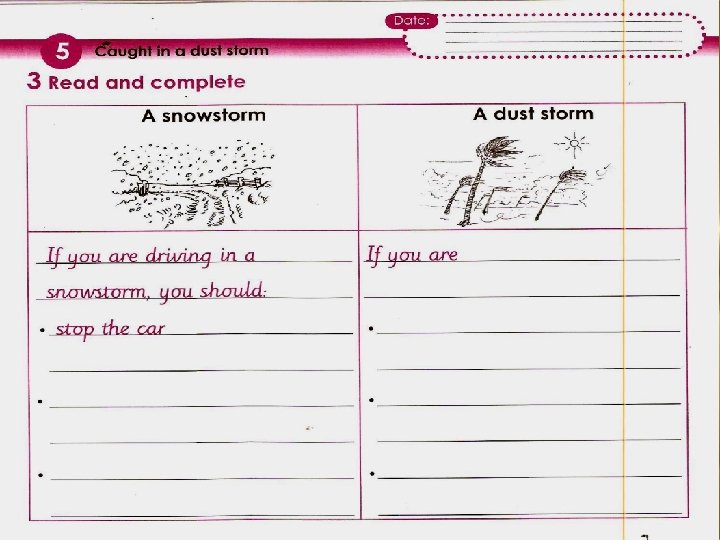 Date:
5 Caught in a dust storm
3 Read and complete
A snowstorm
A dust storm
If you are driving in a
snowstorm, you should:
• stop the car
•
•
If you are
•
•
•